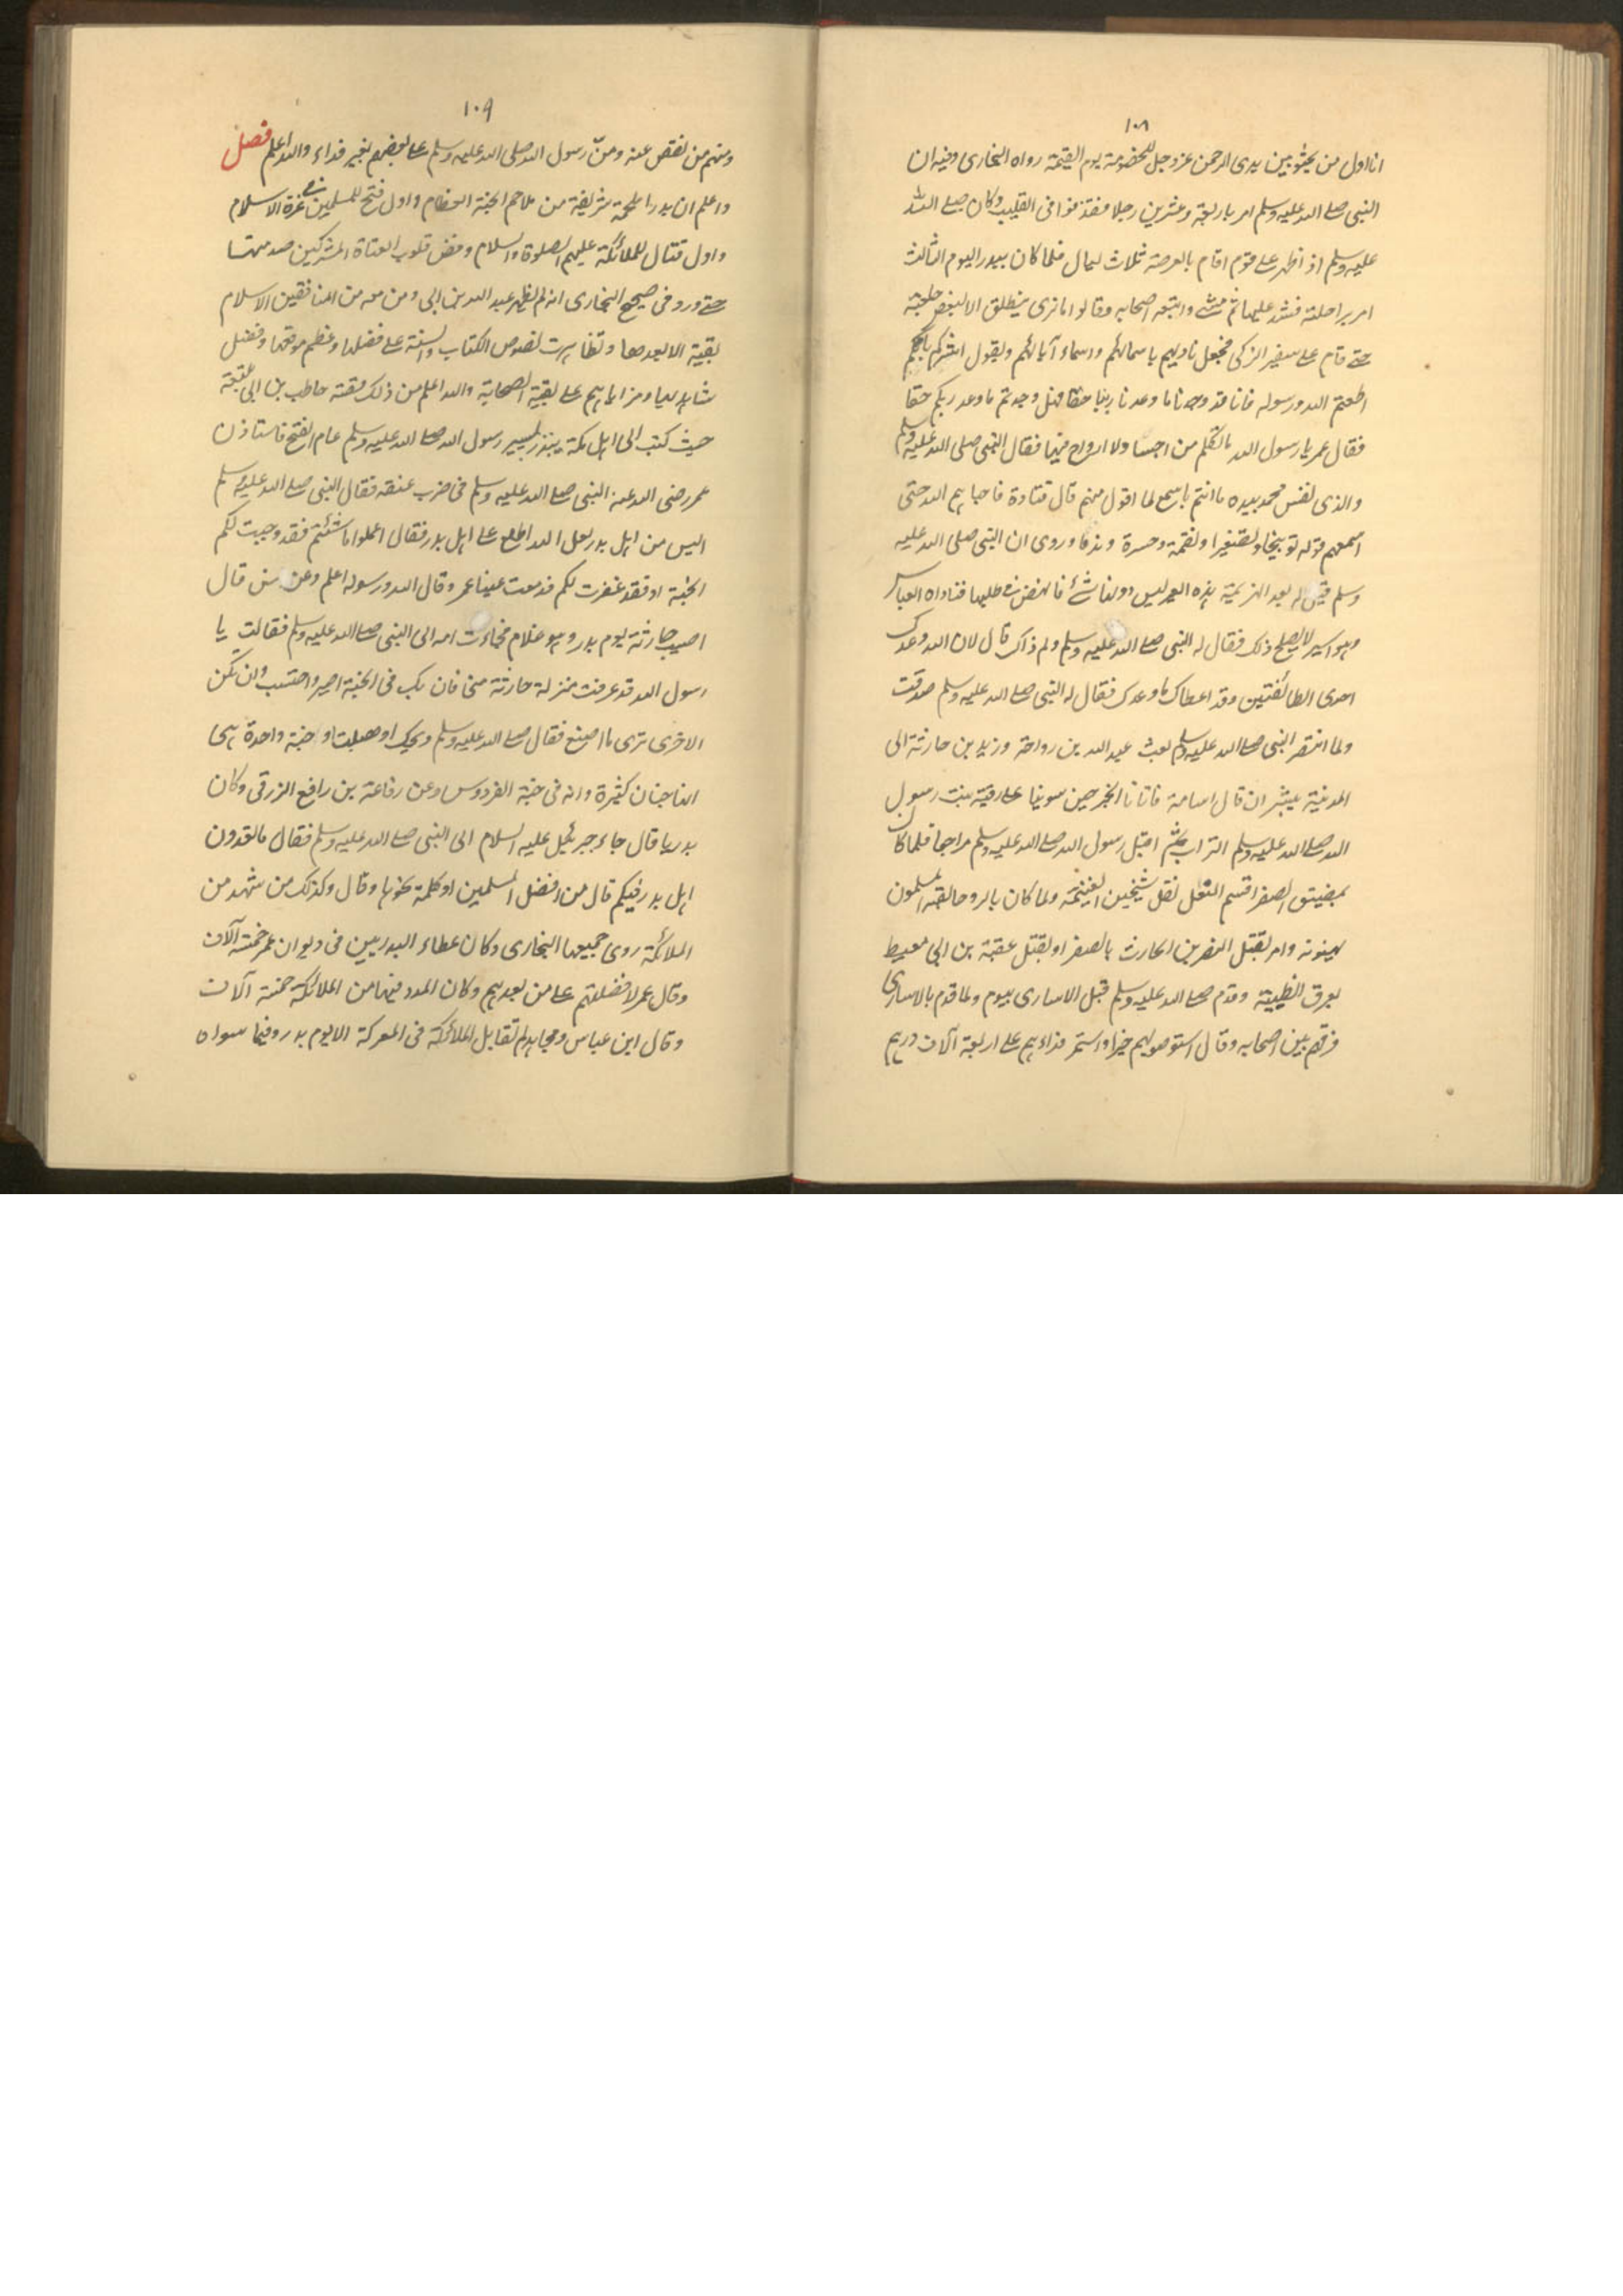 ١٠٨
انا اول من يجثو بين يدى الرحمن عز وجل للخصومة يوم القيمة رواه البخارى وفيه ان
النبى صلے الله عليه وسلم امر باربعة وعشرين رجلا فقذفوا فى القليب وكان صلے الله
عليه وسلم اذ اظهر علے قوم اقام بالعرصة ثلاث ليال فلما كان ببدر اليوم الثالث
امر براحلته فشد عليها ثم مشے واتبعه اصحابه وقالوا ما نرى ينطلق الا لبعض حاجته
حتے قام علے سفير الركى فجعل يناديهم باسمائهم واسماء آبائهم ويقول ايسركم انكم
اطعتم الله ورسوله فانا قد وجدنا ما وعدنا ربنا حقا فهل وجدتم ما وعد ربكم حقا
فقال عمر يا رسول الله ما تكلم من اجسا ولا ارواح فيها فقال النبى صلى الله عليه وسلم
والذى نفس محمد بيده ما انتم باسمع لما اقول منهم قال قتادة فاحياهم الله حتى
اسمعهم قوله توبيخا وتصغيرا ونقمة وحسرة وندما وروى ان النبى صلى الله عليه
وسلم قيل له بعد الهزيمة هذه العير ليس دونها شئ فانهض فى طلبها فناداه العباس
وهو اسير لا يصلح ذلك فقال له النبى صلے الله عليه وسلم ولم ذاك قال لان الله وعدك
احدى الطائفتين وقد اعطاك ما وعدك فقال له النبى صلے الله عليه وسلم صدقت
ولما انتصر النبى صلے الله عليه وسلم بعث عبد الله بن رواحة وزيد بن حارثة الى
المدنية يبشران قال اسامة فاتانا الخبر حين سوينا علے رقية بنت رسول
الله صلے الله عليه وسلم التراب ثم اقبل رسول الله صلے الله عليه وسلم راجعا فلما كان
بمضيق الصفرا قسم النفل الغنيمة ولما كان بالروحا لقيه المسلمون
يهنونه وامر بقتل النضر بن الحارث بالصفرا وبقتل عقبة بن ابى معيط
بعرق الظبية وقدم صلے الله عليه وسلم قبل الاسارى بيوم ولما قدم بالاسارى
فرقهم بين اصحابه وقال استوصوا بهم خيرا واستمر فداءهم علے اربعة آلاف درهم
١٠٩
ومنهم من نقص عنه ومنّ رسول الله صلى الله عليه وسلم علے بعضهم بغير فداء والله اعلم فصل
واعلم ان بدرا ملحمة شريفة من ملاحم الجنة العظام واول فتح للمسلمين فے غرة الاسلام
واول قتال للملائكة عليهم الصلوة والسلام وفض قلوب العتاة المشركين صدمتها
حتے ورد فى صحيح البخارى انه لم يظهر عبد الله بن ابى ومن معه من المنافقين الاسلام
بقية الا بعدها وتظاهرت نصوص الكتاب والسنة علے فضلها وعظم موقعها وفضل
شاهديها ومزاياهم علے بقية الصحابة والله اعلم من ذلك قصة حاطب بن ابى
حيث كتب الى اهل مكة ينذر بمسير رسول الله صلے الله عليه وسلم عام الفتح فاستاذن
عمر رضى الله عنه النبى صلے الله عليه وسلم فى ضرب عنقه فقال النبى صلے الله عليه وسلم
اليس من اهل بدر لعل الله اطلع علے اهل بدر فقال اعملوا ما شئتم فقد وجبت لكم
الجنة او فقد غفرت لكم فدمعت عينا عمر وقال الله ورسوله اعلم وعن انس قال
اصيب حارثة يوم بدر وهو غلام فجاءت امه الى النبى صلے الله عليه وسلم فقالت يا
رسول الله قد عرفت منزلة حارثة منى فان يك فى الجنة اصبر واحتسب وان تكن
الاخرى ترى ما اصنع فقال صلے الله عليه وسلم ويحك او هبلت او جنة واحدة هى
انها جنان كثيرة وانه فى جنة الفردوس وعن رفاعة بن رافع الزرقى وكان
بدريا قال جاء جبرئيل عليه السلام الى النبى صلے الله عليه وسلم فقال ما تعدون
اهل بدر فيكم قال من افضل المسلمين او كلمة نحوها وقال وكذلك من شهد من
الملائكة روى جميعها البخارى وكان عطاء البدريين فى ديوان عمر خمسة آلاف
وقال عمر لافضلنهم علے من بعدهم وكان المدد فيها من الملائكة خمسة آلاف
وقال ابن عباس ومجاهد لم تقاتل الملائكة فى المعركة الا يوم بدر وفيما سواه